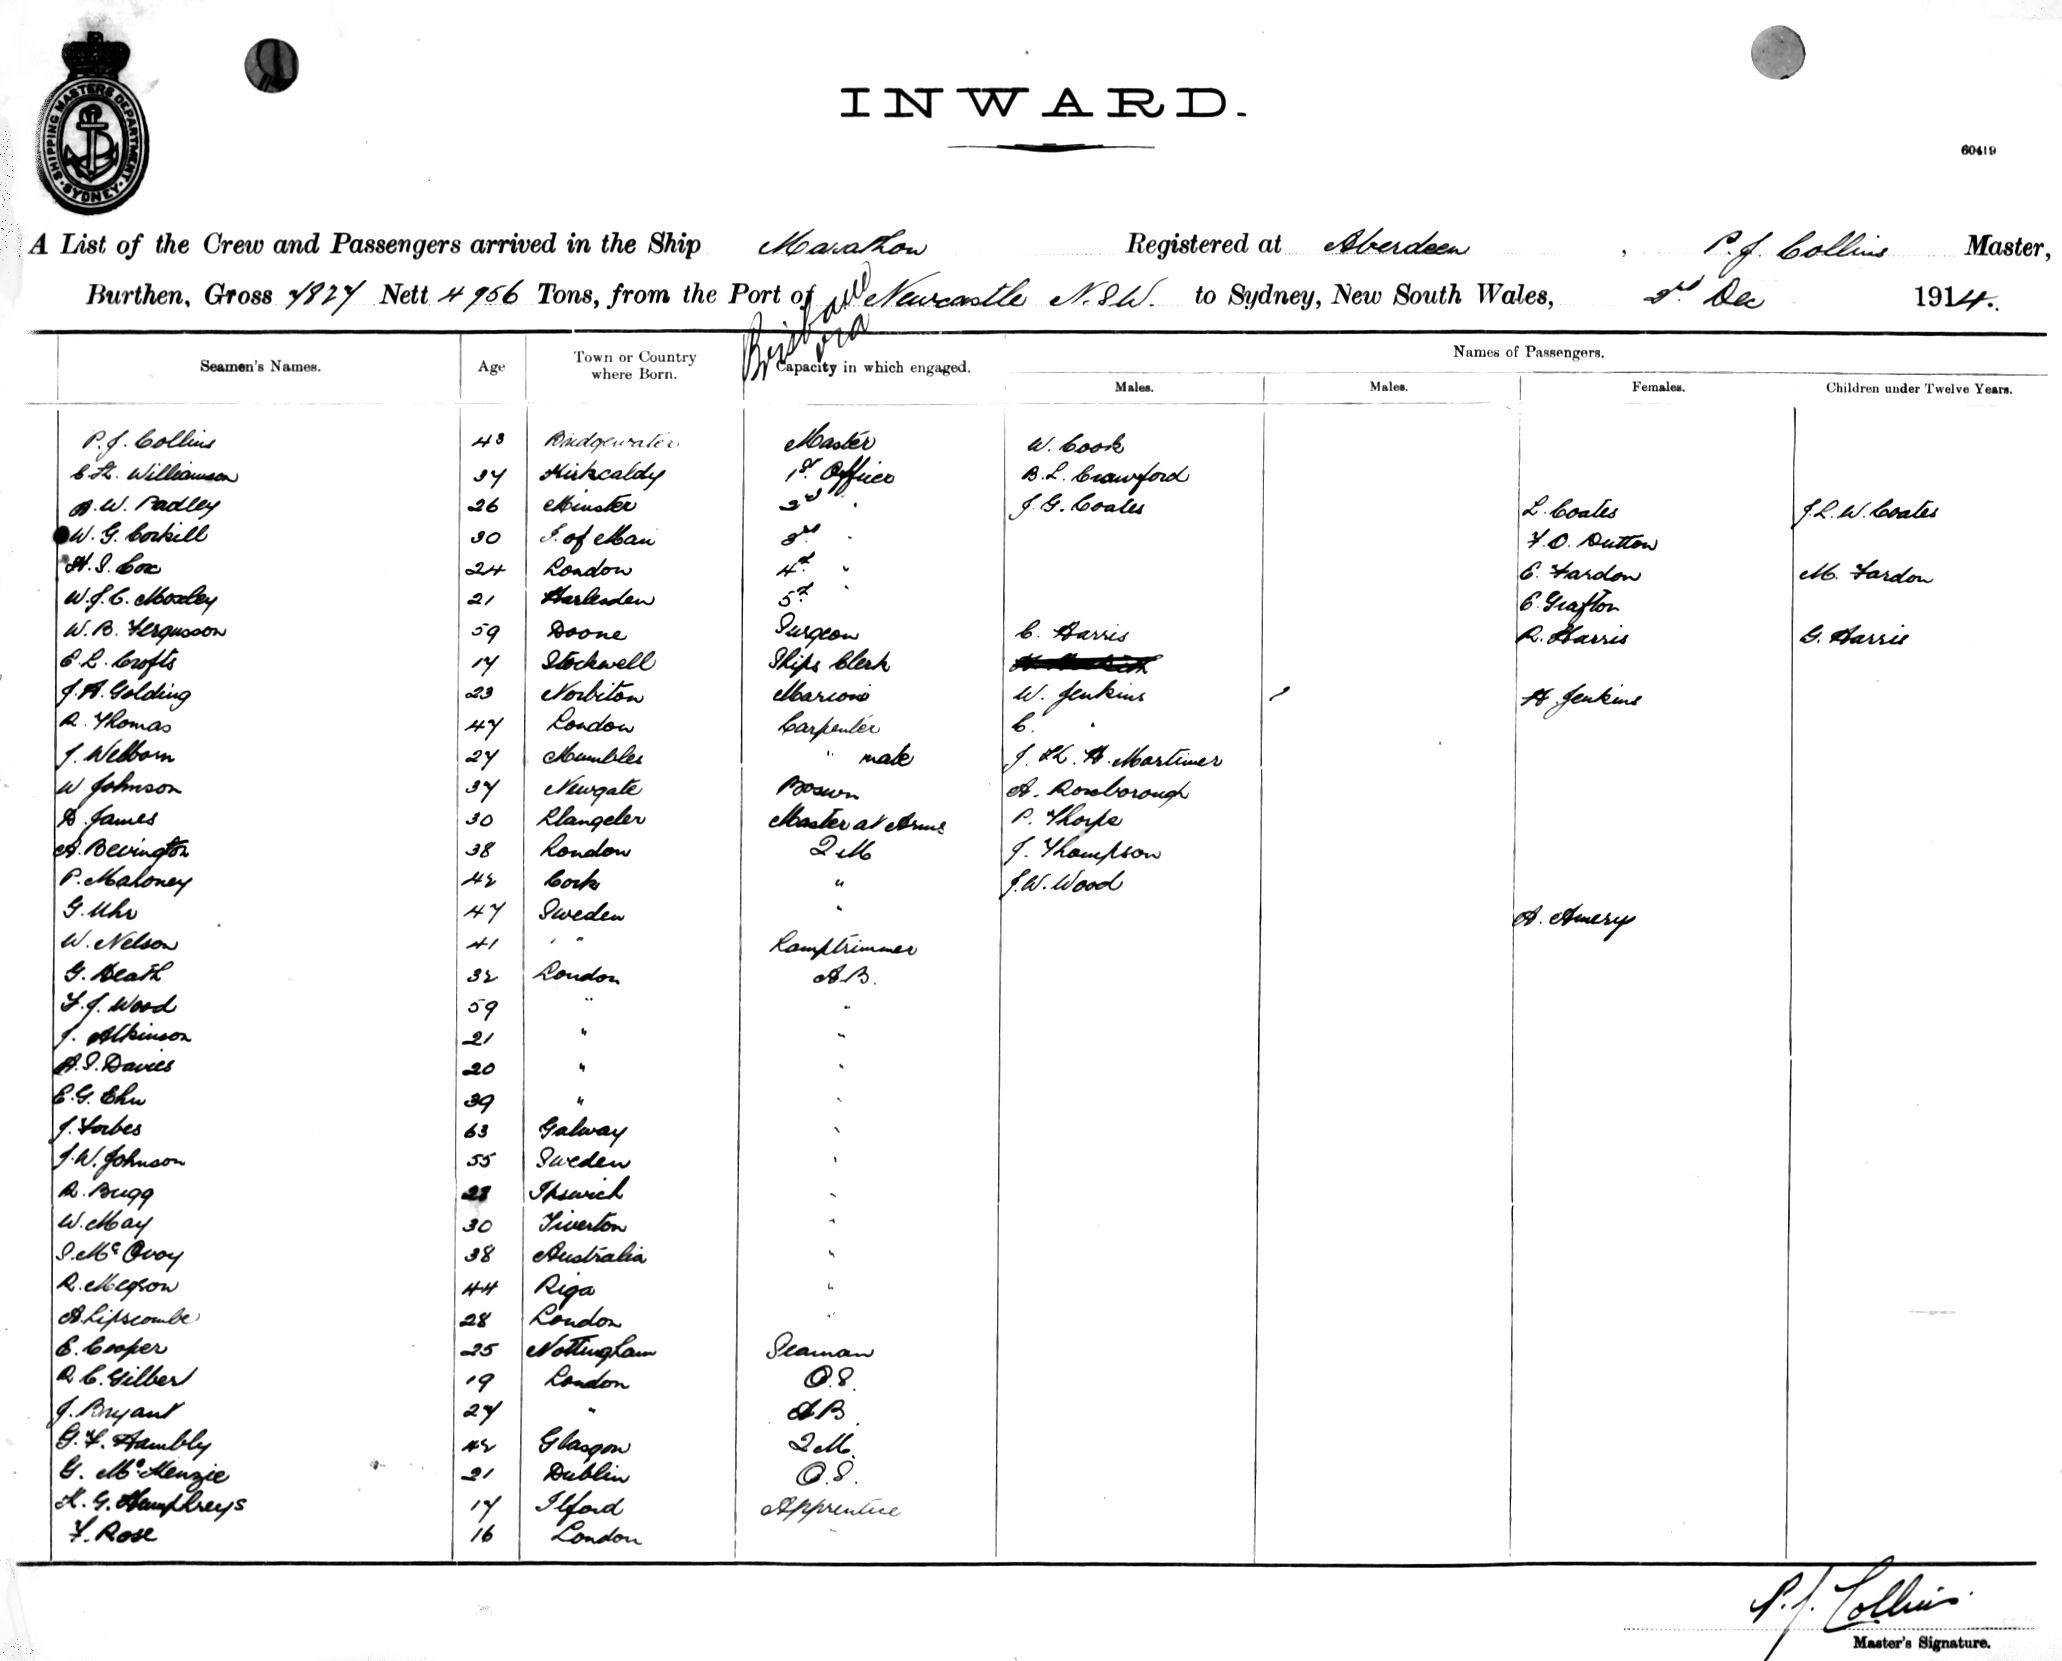 SHIPPING MASTERS DEPARTMENT. SYDNEY.
INWARD.
60419
A List of the Crew and Passengers arrived in the Ship Marathon Registered at Aberdeen, P. J. Collins Master,
Burthen, Gross 7827 Nett 4956 Tons, from the Port of Brisbane via Newcastle N.S.W. to Sydney, New South Wales, 2nd Dec 1914.
Seamen's Names. Age Town or Country where Born. Capacity in which engaged. Names of Passengers.
Males. Males. Females. Children under Twelve Years.
P. J. Collins 43 Bridgewater Master W. Cook
Williamson 37 Kirkcaldy 1st Officer B. L. Crawford
A. W. Padley 26 Minster 2nd " J. G. Coates L. Coates J. L. W. Coates
W. G. Corkill 30 I. of Man 3rd " F. O. Dutton
H. S. Cox 24 London 4th " E. Fardon M. Fardon
W. J. C. Moxley 21 Harlesden 5th " E. Grafton
W. B. Fergusson 59 Doone Surgeon C. Harris R. Harris G. Harris
E. L. Crofts 17 Stockwell Ships Clerk
J. A. Golding 23 Norbiton Marconi W. Jenkins H. Jenkins
R. Thomas 47 London Carpenter C. "
J. Welborn 27 Mumbles " mate J. H. Mortimer
W Johnson 37 Newgate Bosun A. Roxborough
D. James 30 Llangeler Master at Arms P. Thorpe
A. Bevington 38 London Q M J. Thompson
P. Mahoney 42 Cork " J. W. Wood
G. Uhr 47 Sweden " A. Amery
W. Nelson 41 " Lamptrimmer
G. Heath 32 London A.B.
F. J. Wood 59 " "
J. Atkinson 21 " "
A. S. Davies 20 " "
E. G. 39 " "
J. Forbes 63 Galway "
J. W. Johnson 55 Sweden "
R. Bugg 28 Ipswich "
W. May 30 Tiverton "
S. McEvoy 38 Australia "
R. Megson 44 Riga "
A Lipscombe 28 London "
E. Cooper 25 Nottingham Seaman
R C. Gilbert 19 London O.S.
J. Bryant 27 " A B
G. F. Hambly 42 Glasgow Q M.
G. McKenzie 21 Dublin O.S.
K. G. Humphreys 17 Ilford Apprentice
F. Rose 16 London "
P. J. Collins
Master's Signature.